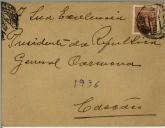 Sua Excelencia
Presidente da Republica
General Carmona
1936